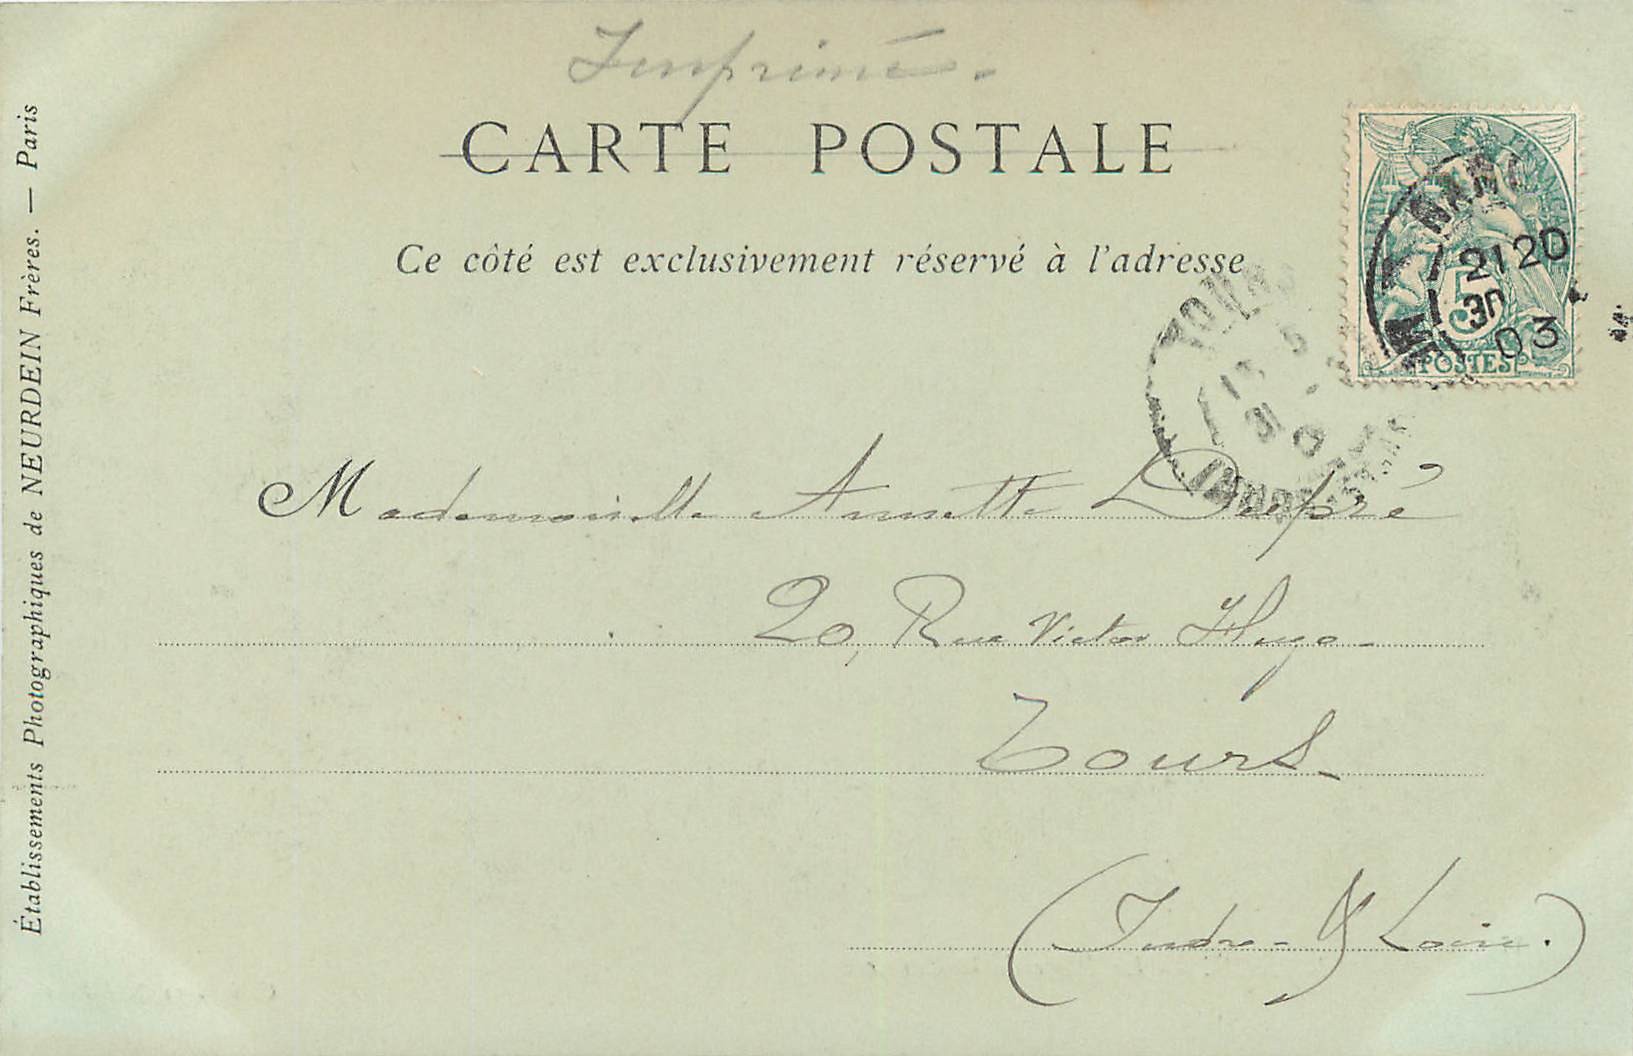 Imprimé.
CARTE POSTALE
Ce côté est exclusivement réservé à l'adresse
RÉPUBLIQUE FRANÇAISE
5
POSTES
21 20
30
03
TOURS
31
Mademoiselle Annette Dupré
20, Rue Victor Hugo
Tours
(Indre & Loire.)
Établissements Photographiques de NEURDEIN Frères. — Paris